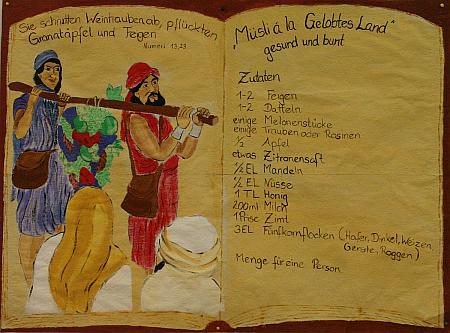 Sie schnitten Weintrauben ab, pflückten
Granatäpfel und Feigen
Numeri 13,23
"Müsli á la Gelobtes Land"
gesund und bunt
Zutaten
1-2 Feigen
1-2 Datteln
einige Melonenstücke
einige Trauben oder Rosinen
½ Apfel
etwas Zitronensaft
½ EL Mandeln
½ EL Nüsse
1 TL Honig
200ml Milch
1 Prise Zimt
3EL Fünfkornflocken (Hafer, Dinkel, Weizen,
Gerste, Roggen)
Menge für eine Person